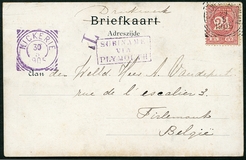 Drukwerk
Briefkaart
Adreszijde
NICKERIE
30
SURINAME
VIA
PLYMOUTH
2½
Aan den Weled. Heer A. Vandeput
rue de l'escalier 3.
Tirlemont
België